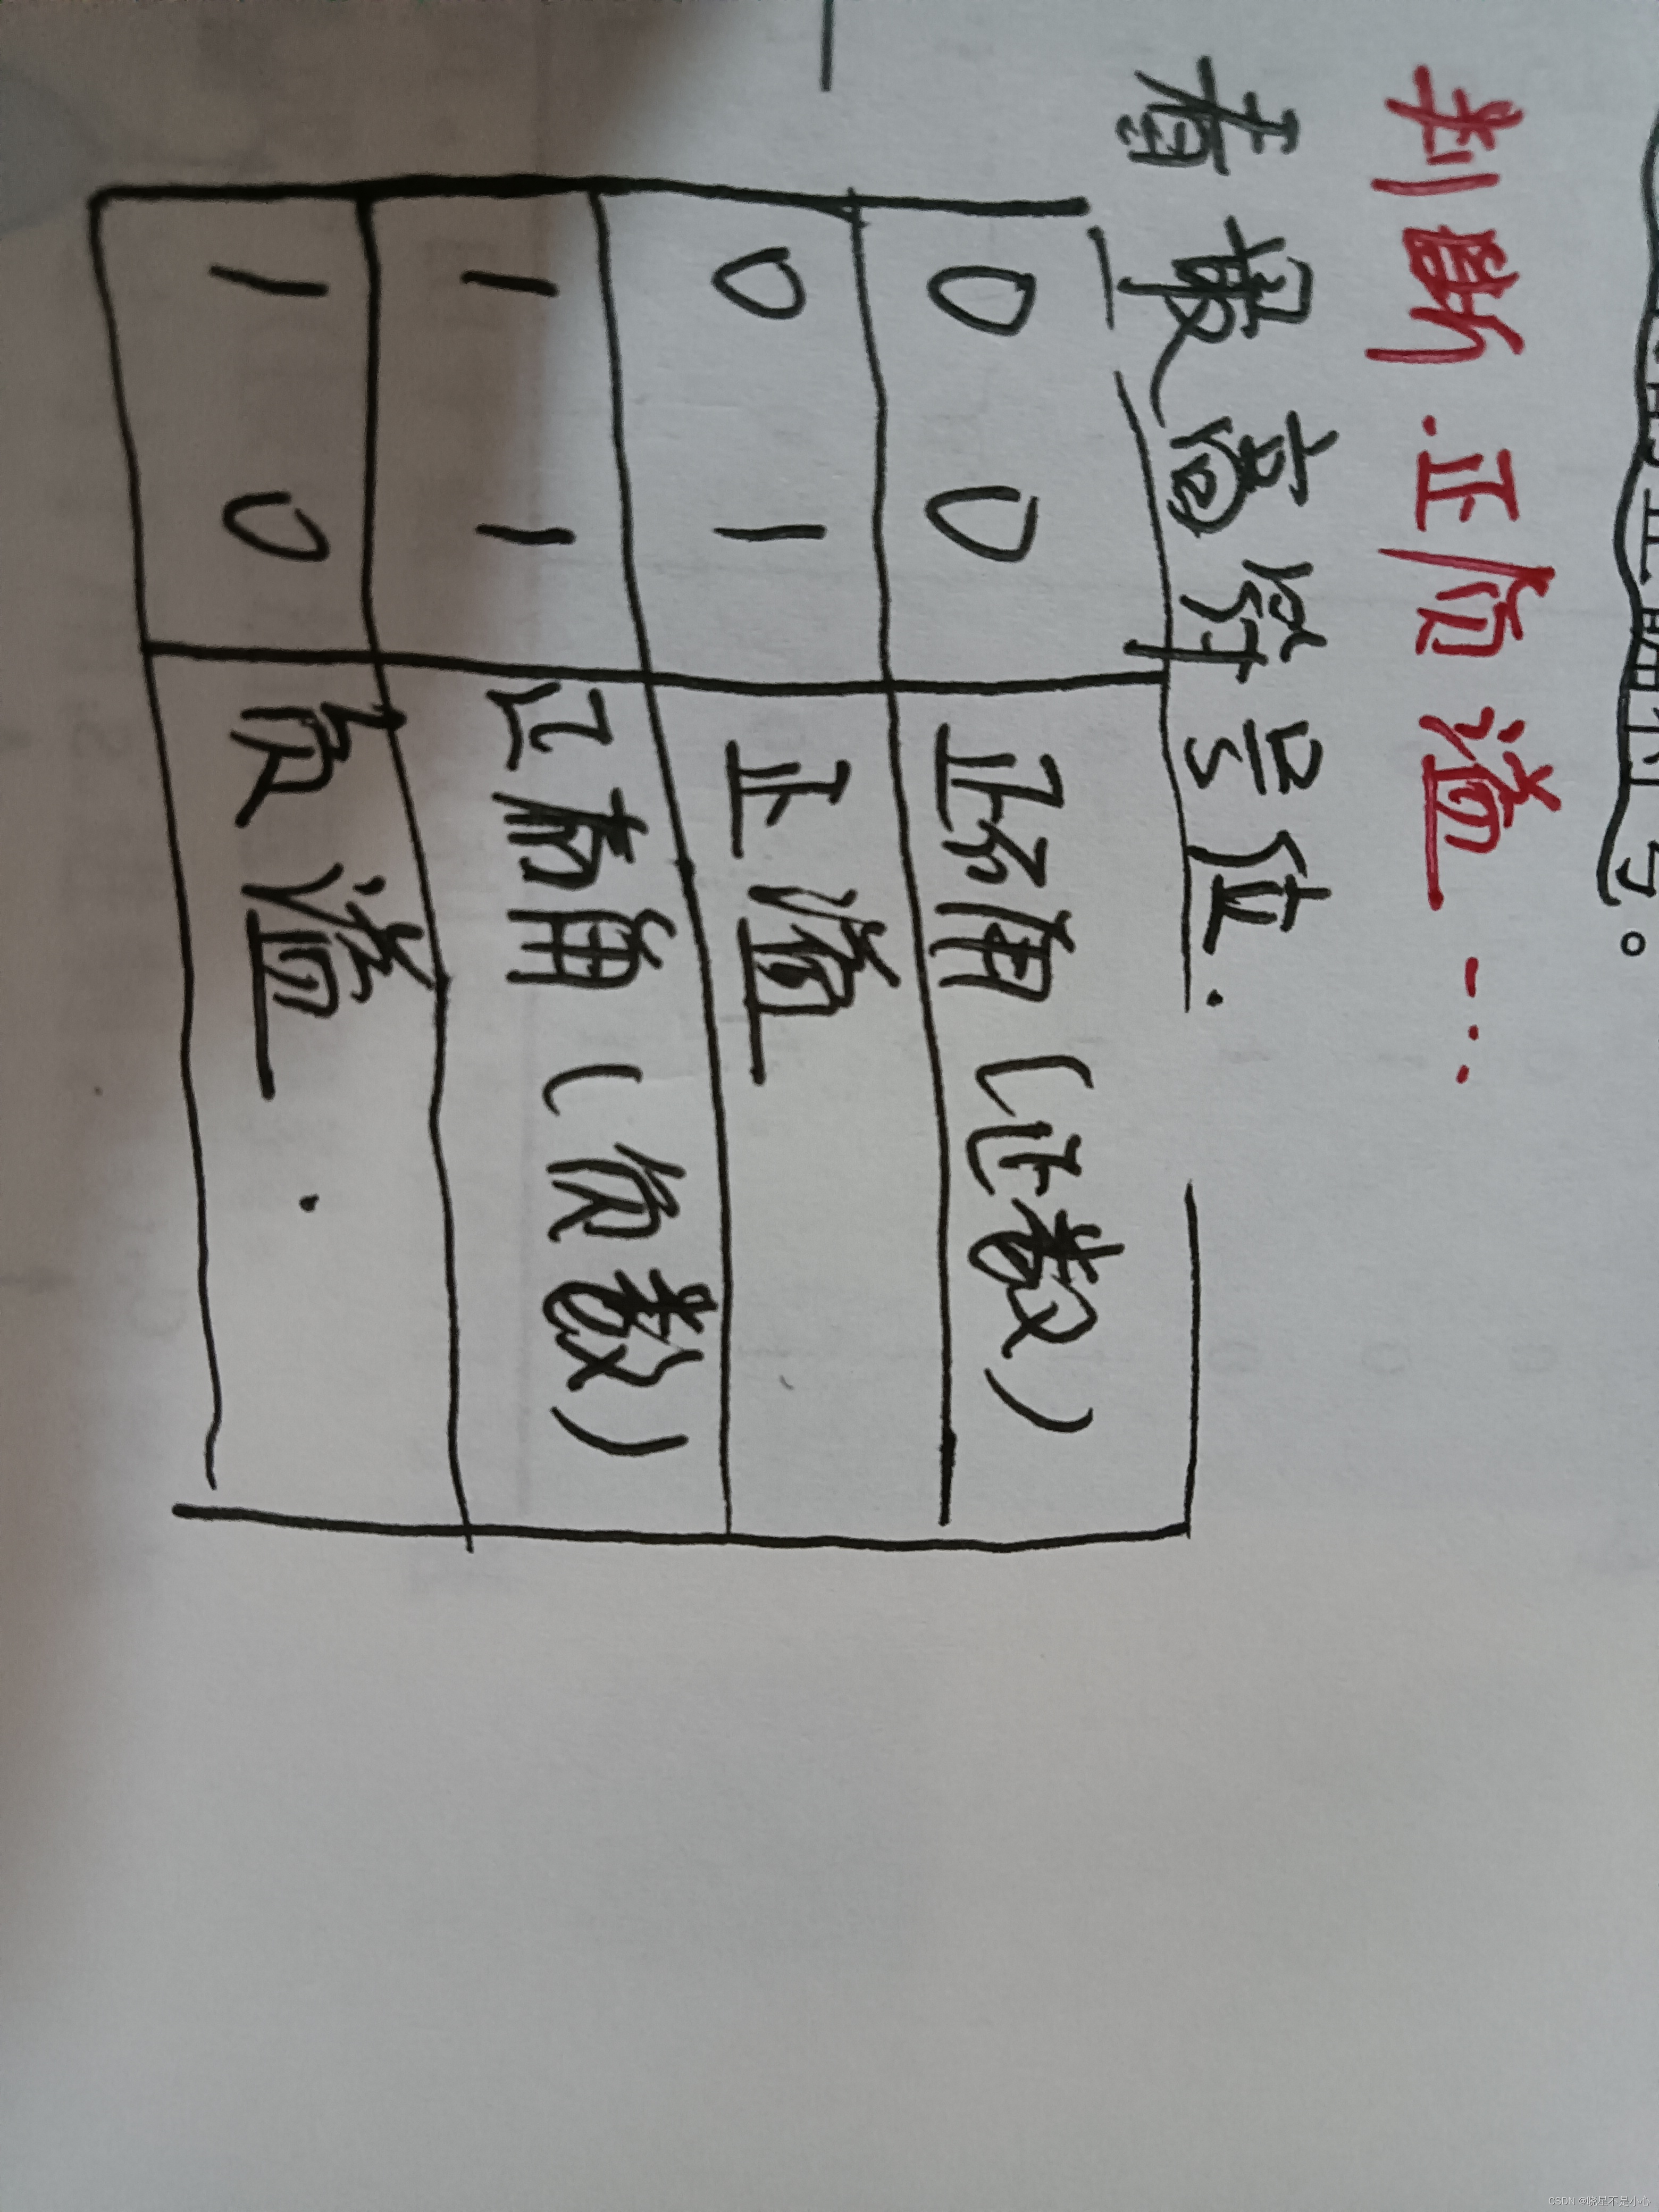 判断正负溢---
看最高符号位.
0 0 正确(正数)
0 1 正溢
1 1 正确(负数)
1 0 负溢.
CSDN @晓星不是小心